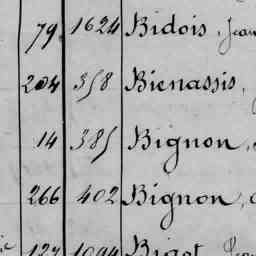 79 1624 Bidois, Jean
204 358 Bienassis,
14 385 Bignon,
266 402 Bignon,
127 1094 Bigot, Jean